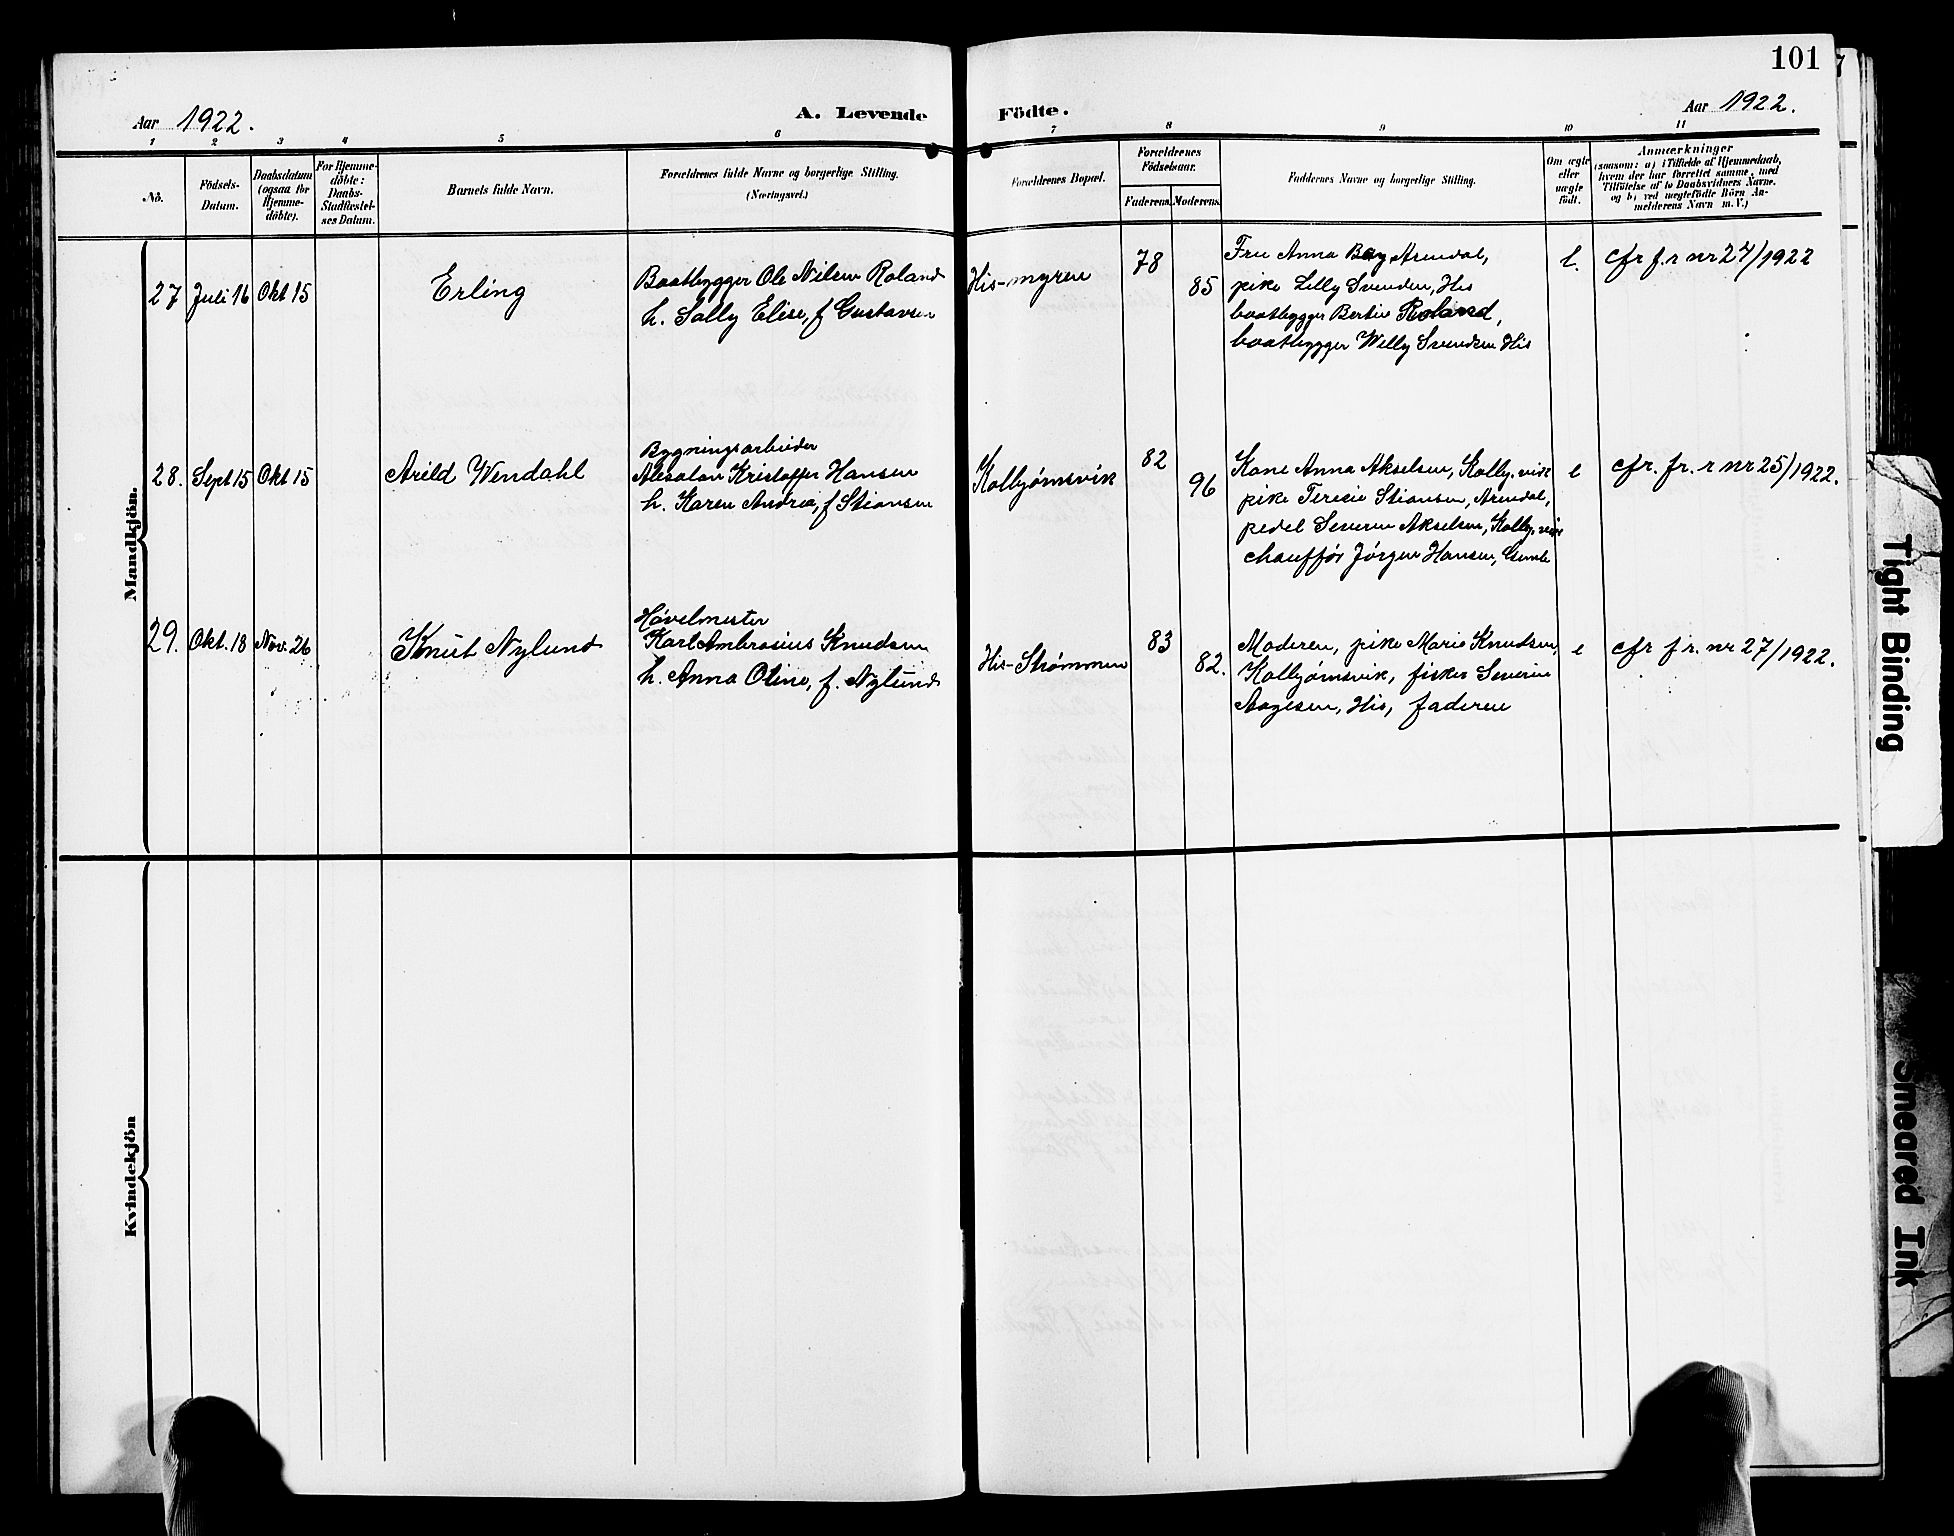 101
Aar 1922.
A. Levende Födte.
Aar 1922.
1 2 3 4 5 6 7 8 9 10 11
No.
Födsels-
Datum.
Daabsdatum
(ogsaa for
Hjemme-
döbte).
For Hjemme-
döbte:
Daabs-
Stadfæstel-
ses Datum.
Barnets fulde Navn.
Forældrenes fulde Navne og borgerlige Stilling.
(Næringsvei.)
Forældrenes Bopæl.
Forældrenes
Födselsaar.
Faderens. Moderens.
Faddernes Navne og borgerlige Stilling.
Om ægte
eller
uægte
födt.
Anmærkninger
(saasom: a) i Tilfælde af Hjemmedaab,
hvem der har forrettet samme, med
Tilföielse af to Daabsvidners Navne,
og b) ved uægtefödte Börn An-
melderens Navn m. V.)
Mandkjön.
27 Juli 16 Okt 15
Erling
Baatbygger Ole Nilsen Roland
h. Sally Elise, f Gustavsen
His-myren
78
85
Fru Anna Bay Arendal,
pike Lilly Svendsen, His
baatbygger Bertin Roland,
baatbygger Willy Svendsen His
e.
cfr f.r nr 24/1922
28. Sept 15 Okt 15
Arild Wendahl
Bygningsarbeider
Absalon Kristoffer Hansen
h. Karen Andrea, f Stiansen
Kolbjørnsvik
82
96
Kone Anna Akselsen, Kolbj.vik
pike Terecie Stiansen, Arendal,
pedel Severin Akselsen, Kolbj.vik
chauffør Jørgen Hansen,
e
cfr. fr. r nr 25/1922.
29. Okt. 18 Nov. 26
Knut Nylund
Høvelmester
Karl Ambrosius Knudsen
h. Anna Oline, f. Nylund
His-Strømmen
83
82.
Moderen, pike Marie Knudsen,
Kolbjørnsvik, fisker Severin
Aagesen, His, faderen
e
cfr f r. nr 27/1922.
Kvindekjön
Tight Binding
Smeared Ink